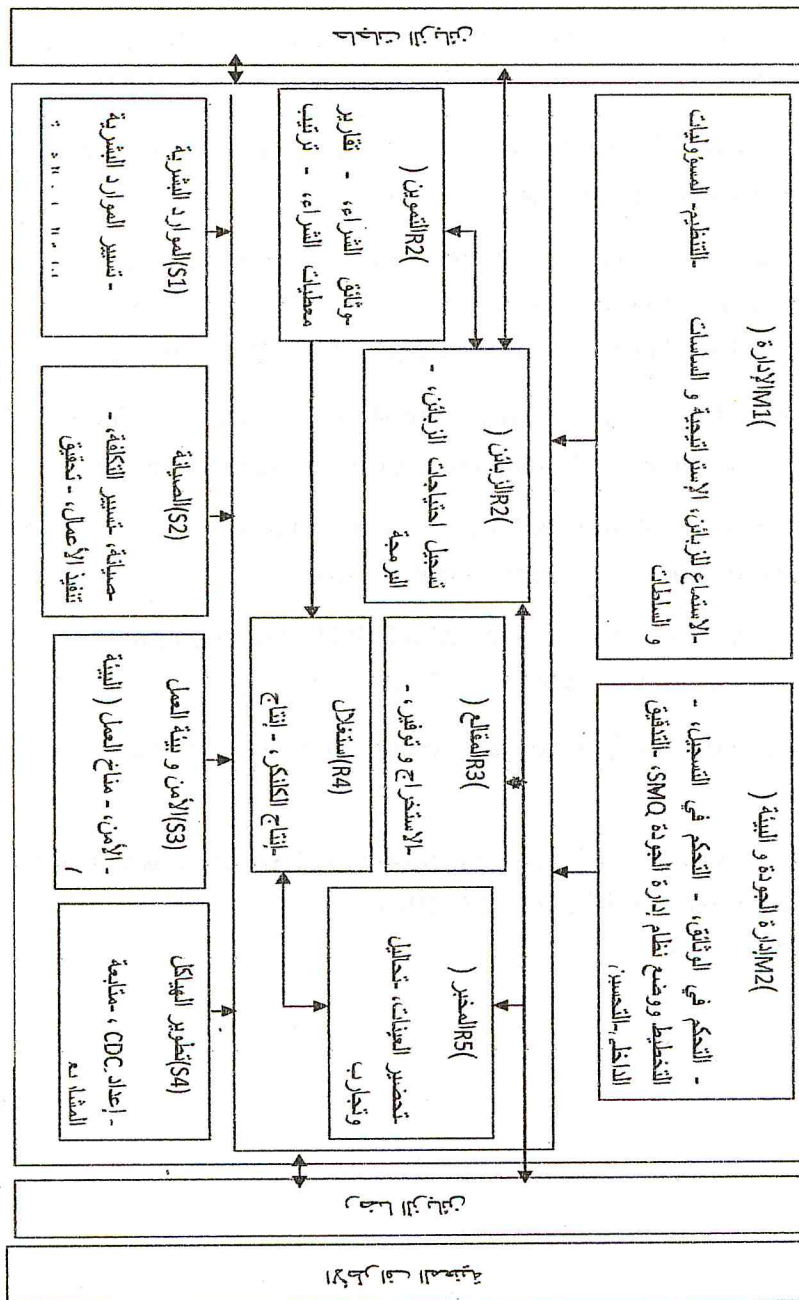 حاجات الزبائن
)M1الإدارة (
-التنظيم- المسؤوليات
-الاستماع للزبائن، الإستراتيجية و الساسات
و السلطات
)M2إدارة الجودة و البيئة (
- التحكم في الوثائق، - التحكم في التسجيل، -
التخطيط ووضع نظام إدارة الجودة SMQ، -التدقيق
الداخلي-التحسين
)R2التموين (
-وثائق الشراء، - تقارير
معطيات الشراء، - ترتيب
)R2الزبائن (
تسجيل احتياجات الزبائن، -
البرمجة
)R3المقالع (
-الاستخراج و توفير، -
(R4)استغلال
-إنتاج الكلنكر، - إنتاج
)R5المخبر (
-تحضير العينات، -تحاليل
وتجارب
(S1)الموارد البشرية
- تسيير الموارد البشرية
(S2)الصيانة
-صيانة، -تسيير التكلفة، -
تنفيذ الأعمال، - تحقيق
(S3)الأمن و بيئة العمل
- الأمن، - مناخ العمل ( البيئة
(S4)تطوير الهياكل
- إعداد CDC ، -متابعة
المشاريع
رضا الزبائن
الأطراف المعنية